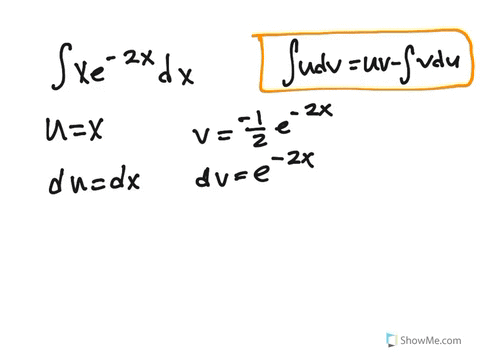 ∫xe^{-2x}dx
∫udv=uv-∫vdu
u=x
v=-1/2 e^{-2x}
du=dx
dv=e^{-2x}
ShowMe.com